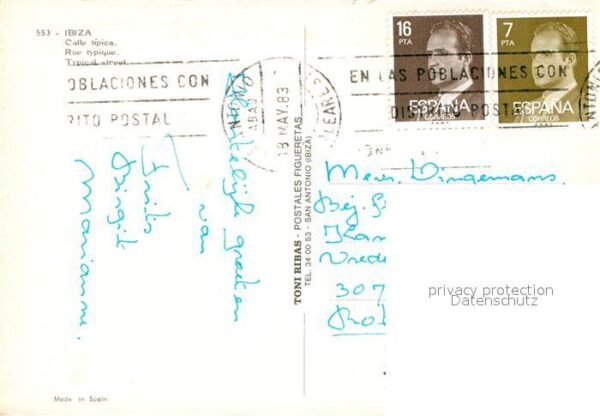 553 - IBIZA
Calle típica.
Rue typique.
Typical street.
OBLACIONES CON
RITO POSTAL
18 MAY. 83
LEARES
EN LAS POBLACIONES CON
DISTRITO POSTAL
16
PTA
ESPAÑA
CORREOS
7
PTA
ESPAÑA
CORREOS
Hartelijk groeten
van
Frits
Birgit
Marianne.
TONI RIBAS - POSTALES FIGUERETAS
TEL. 34 00 53 - SAN ANTONIO (IBIZA)
Mevr. Dingemans.
Bej.
Kam
Vrede
307
Rot
privacy protection
Datenschutz
Made in Spain